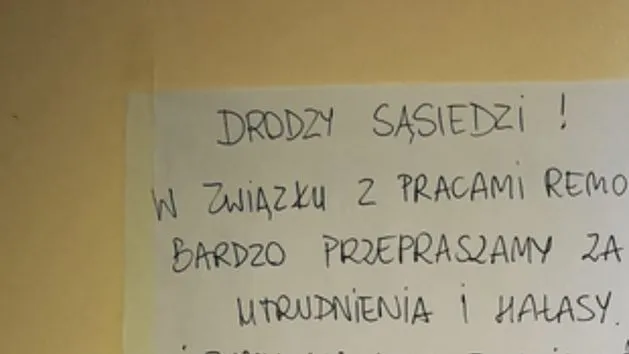 DRODZY SĄSIEDZI !
W ZWIĄZKU Z PRACAMI REMO
BARDZO PRZEPRASZAMY ZA
UTRUDNIENIA I HAŁASY.